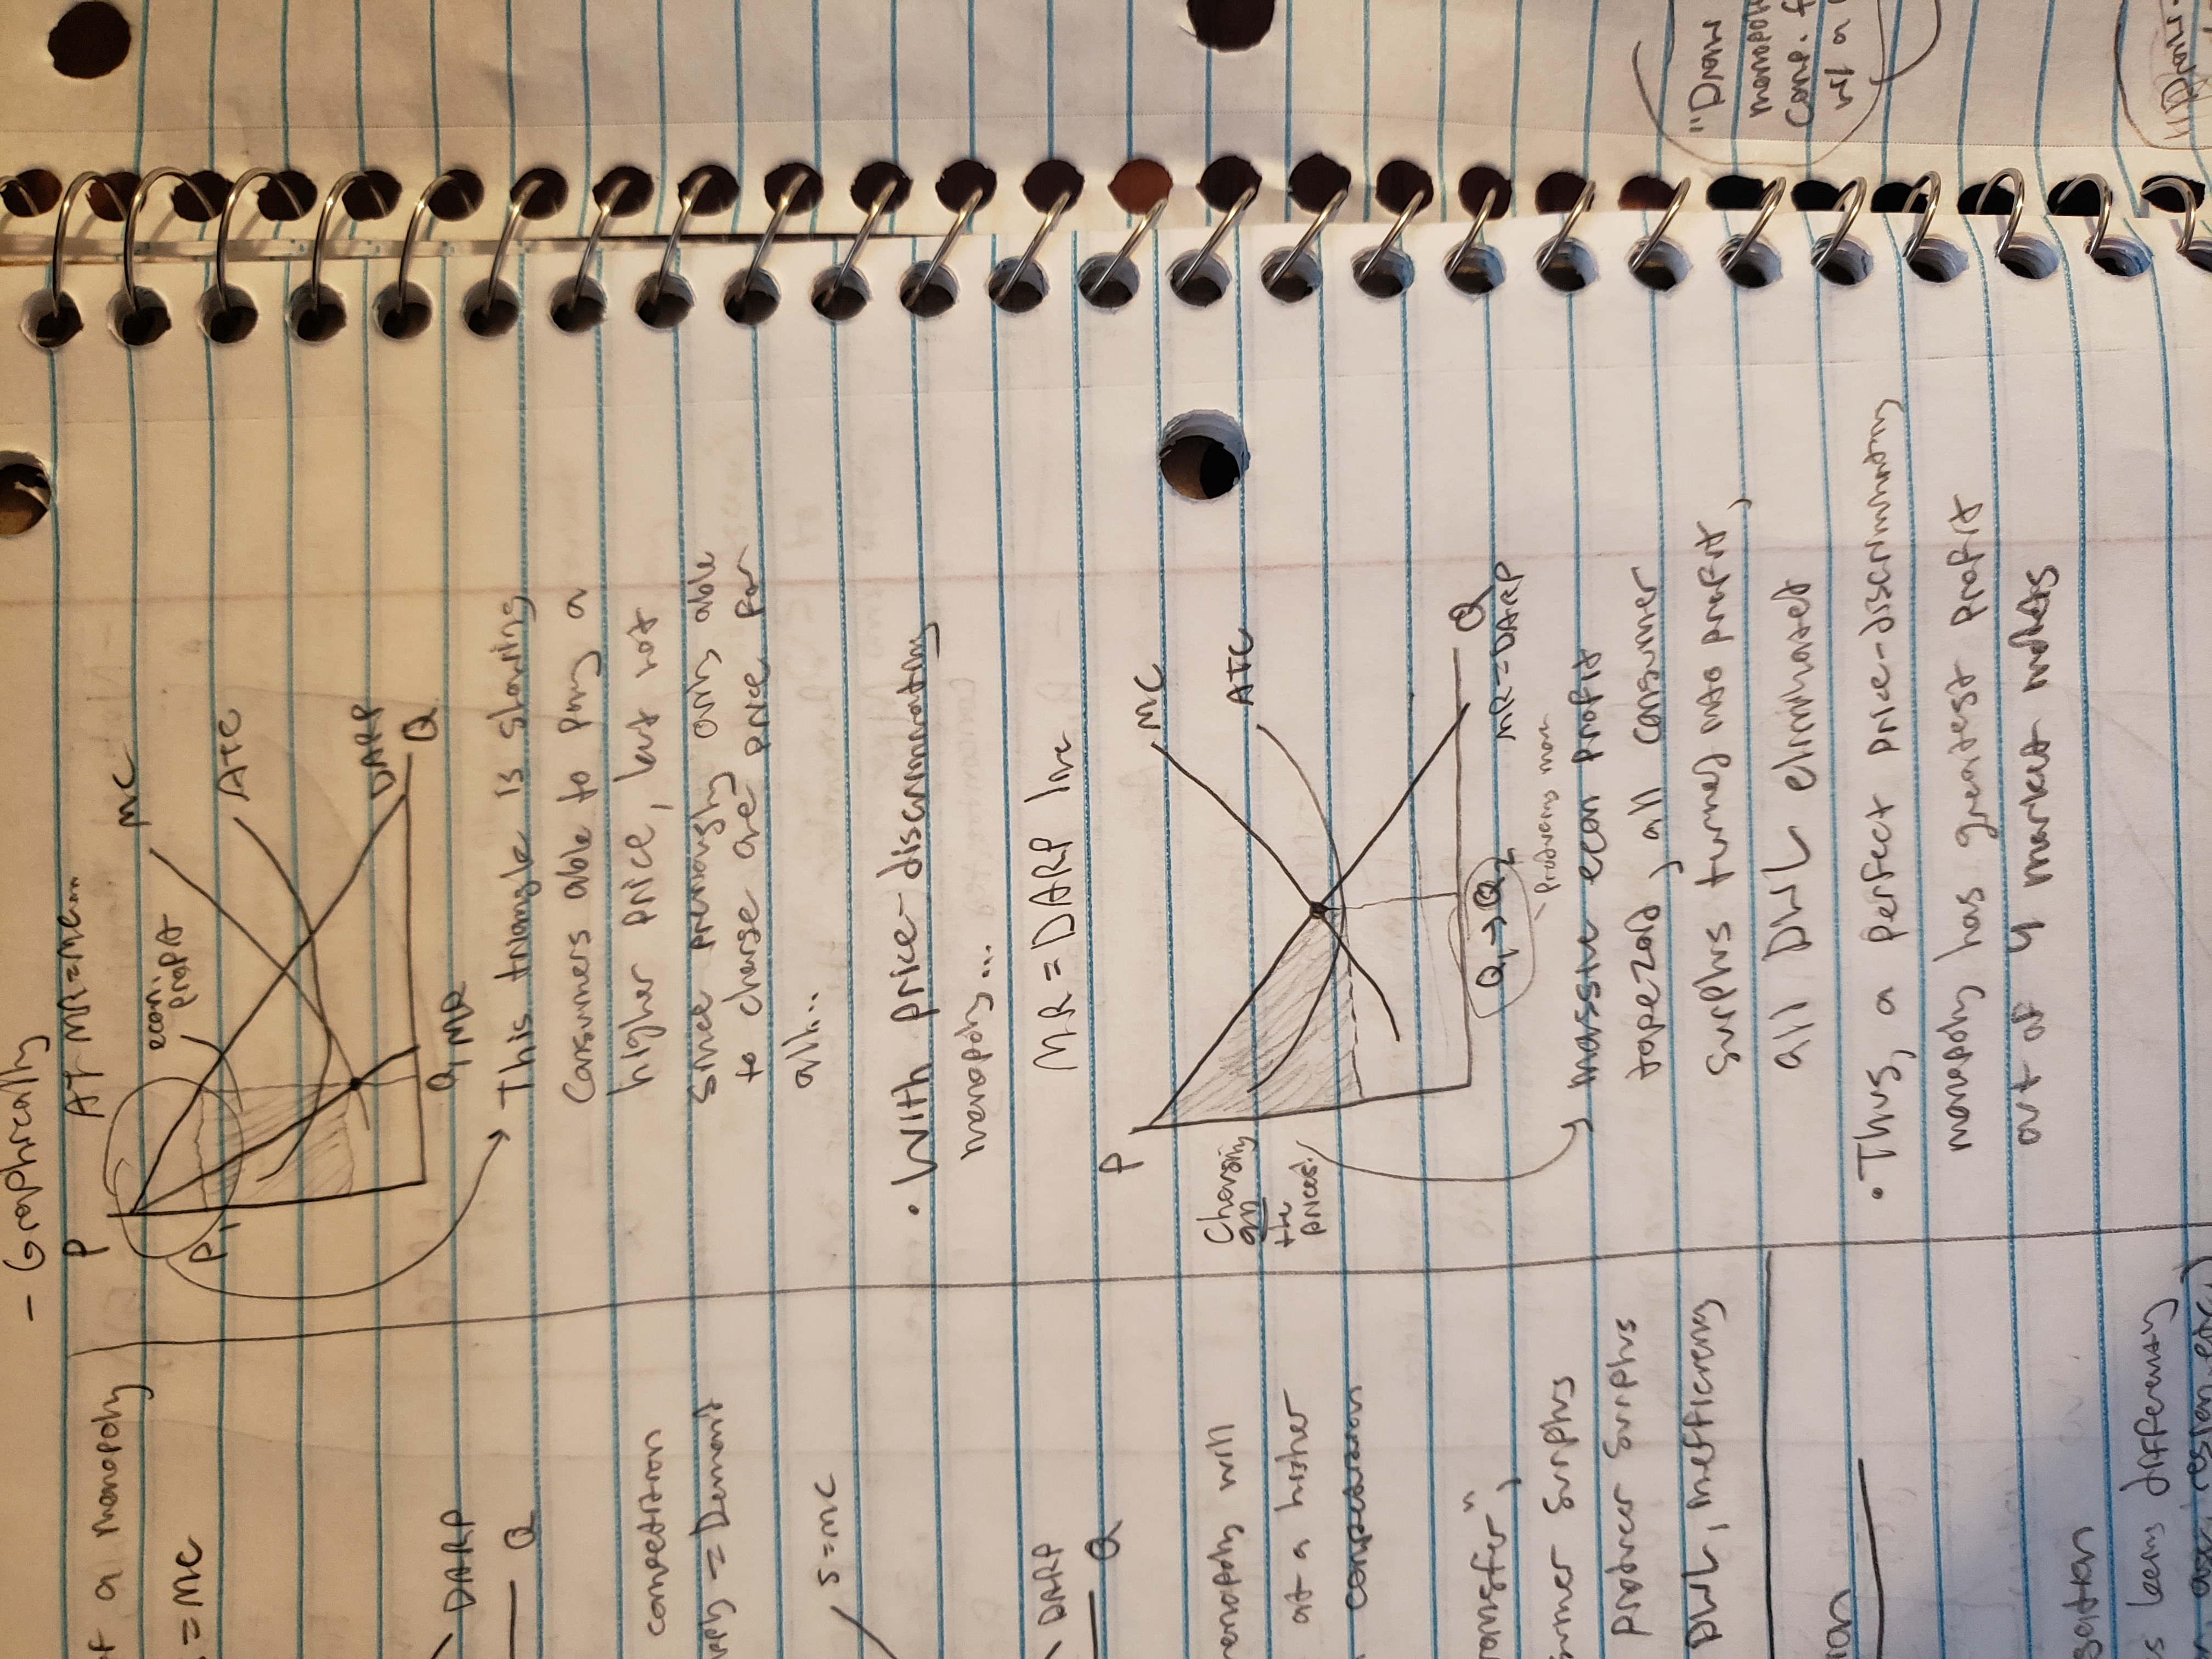 - Graphically
P At MR=MC...
econ. profit
MC
ATC
P1
DARP
Q
Q1 MR
This triangle is showing
Consumers able to pay a
higher price, but not
since previously only able
to charge one price for
all...
• With price-discriminating
monopoly...
MR = DARP line
P
MC
ATC
Charging
all
the
prices!
Q
Q1 → Q2
MR=DARP
- Produces more
massive econ profit
trapezoid, all consumer
surplus turned into profit,
all DWL eliminated
• Thus, a perfect price-discriminating
monopoly has greatest profit
out of 4 market models
of a monopoly
= MC
DARP
Q
competition
= Demand
S=MC
DARP
Q
will
at a higher
competition
surplus
producer surplus
DWL, inefficiency
differently
"Draw
comp. f
w/ a
"Draw